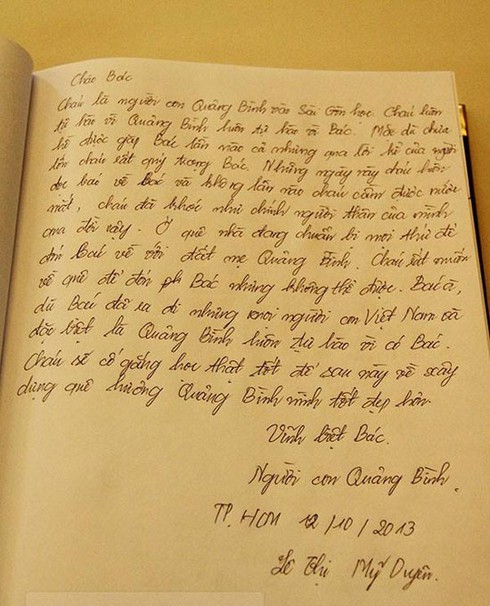 Chào Bác
Cháu là người con Quảng Bình vào Sài Gòn học. Cháu luôn
tự hào vì Quảng Bình luôn tự hào vì Bác. Mặc dù chưa
hề được gặp Bác lần nào cả nhưng qua lời kể của người
lớn cháu rất quý trọng Bác. Những ngày này cháu luôn
đọc báo về Bác và không lần nào cháu cầm được nước
mắt, cháu đã khóc như chính người thân của mình
qua đời vậy. Ở quê nhà đang chuẩn bị mọi thứ để
đón Bác về với đất mẹ Quảng Bình. Cháu rất muốn
về quê để đón Bác nhưng không thể được. Bác à,
dù Bác đã ra đi nhưng mọi người con Việt Nam và
đặc biệt là Quảng Bình luôn tự hào vì có Bác.
Cháu sẽ cố gắng học thật tốt để sau này về xây
dựng quê hương Quảng Bình mình tốt đẹp hơn.
Vĩnh biệt Bác.
Người con Quảng Bình.
TP. HCM 12/10/2013
Lê Thị Mỹ Duyên.